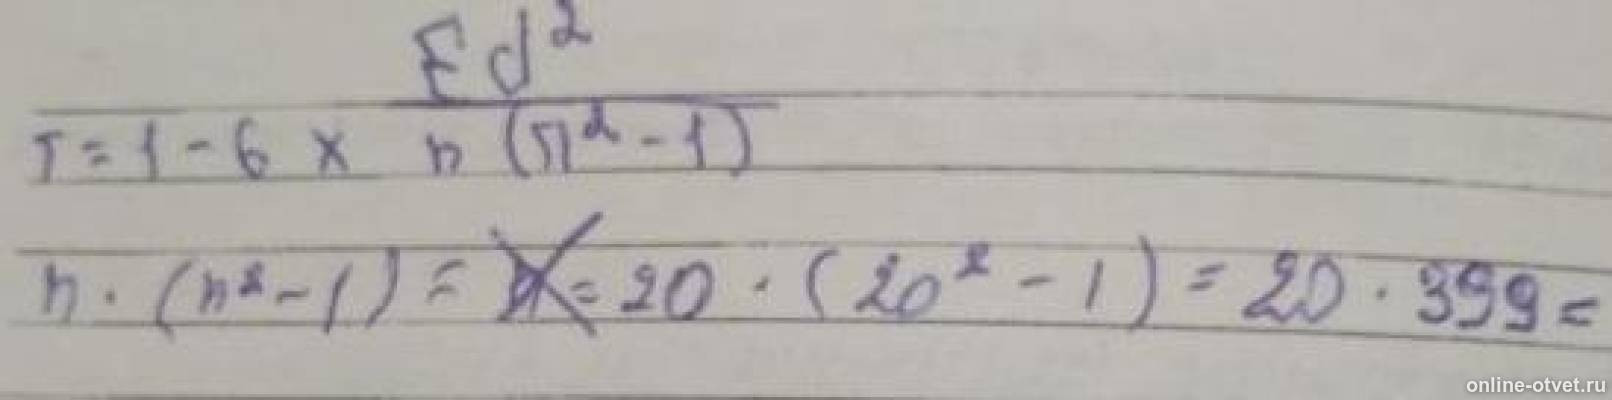 Ed²
r = 1 - 6 × n (n² - 1)
n · (n² - 1) = = 20 · (20² - 1) = 20 · 399 =
online-otvet.ru